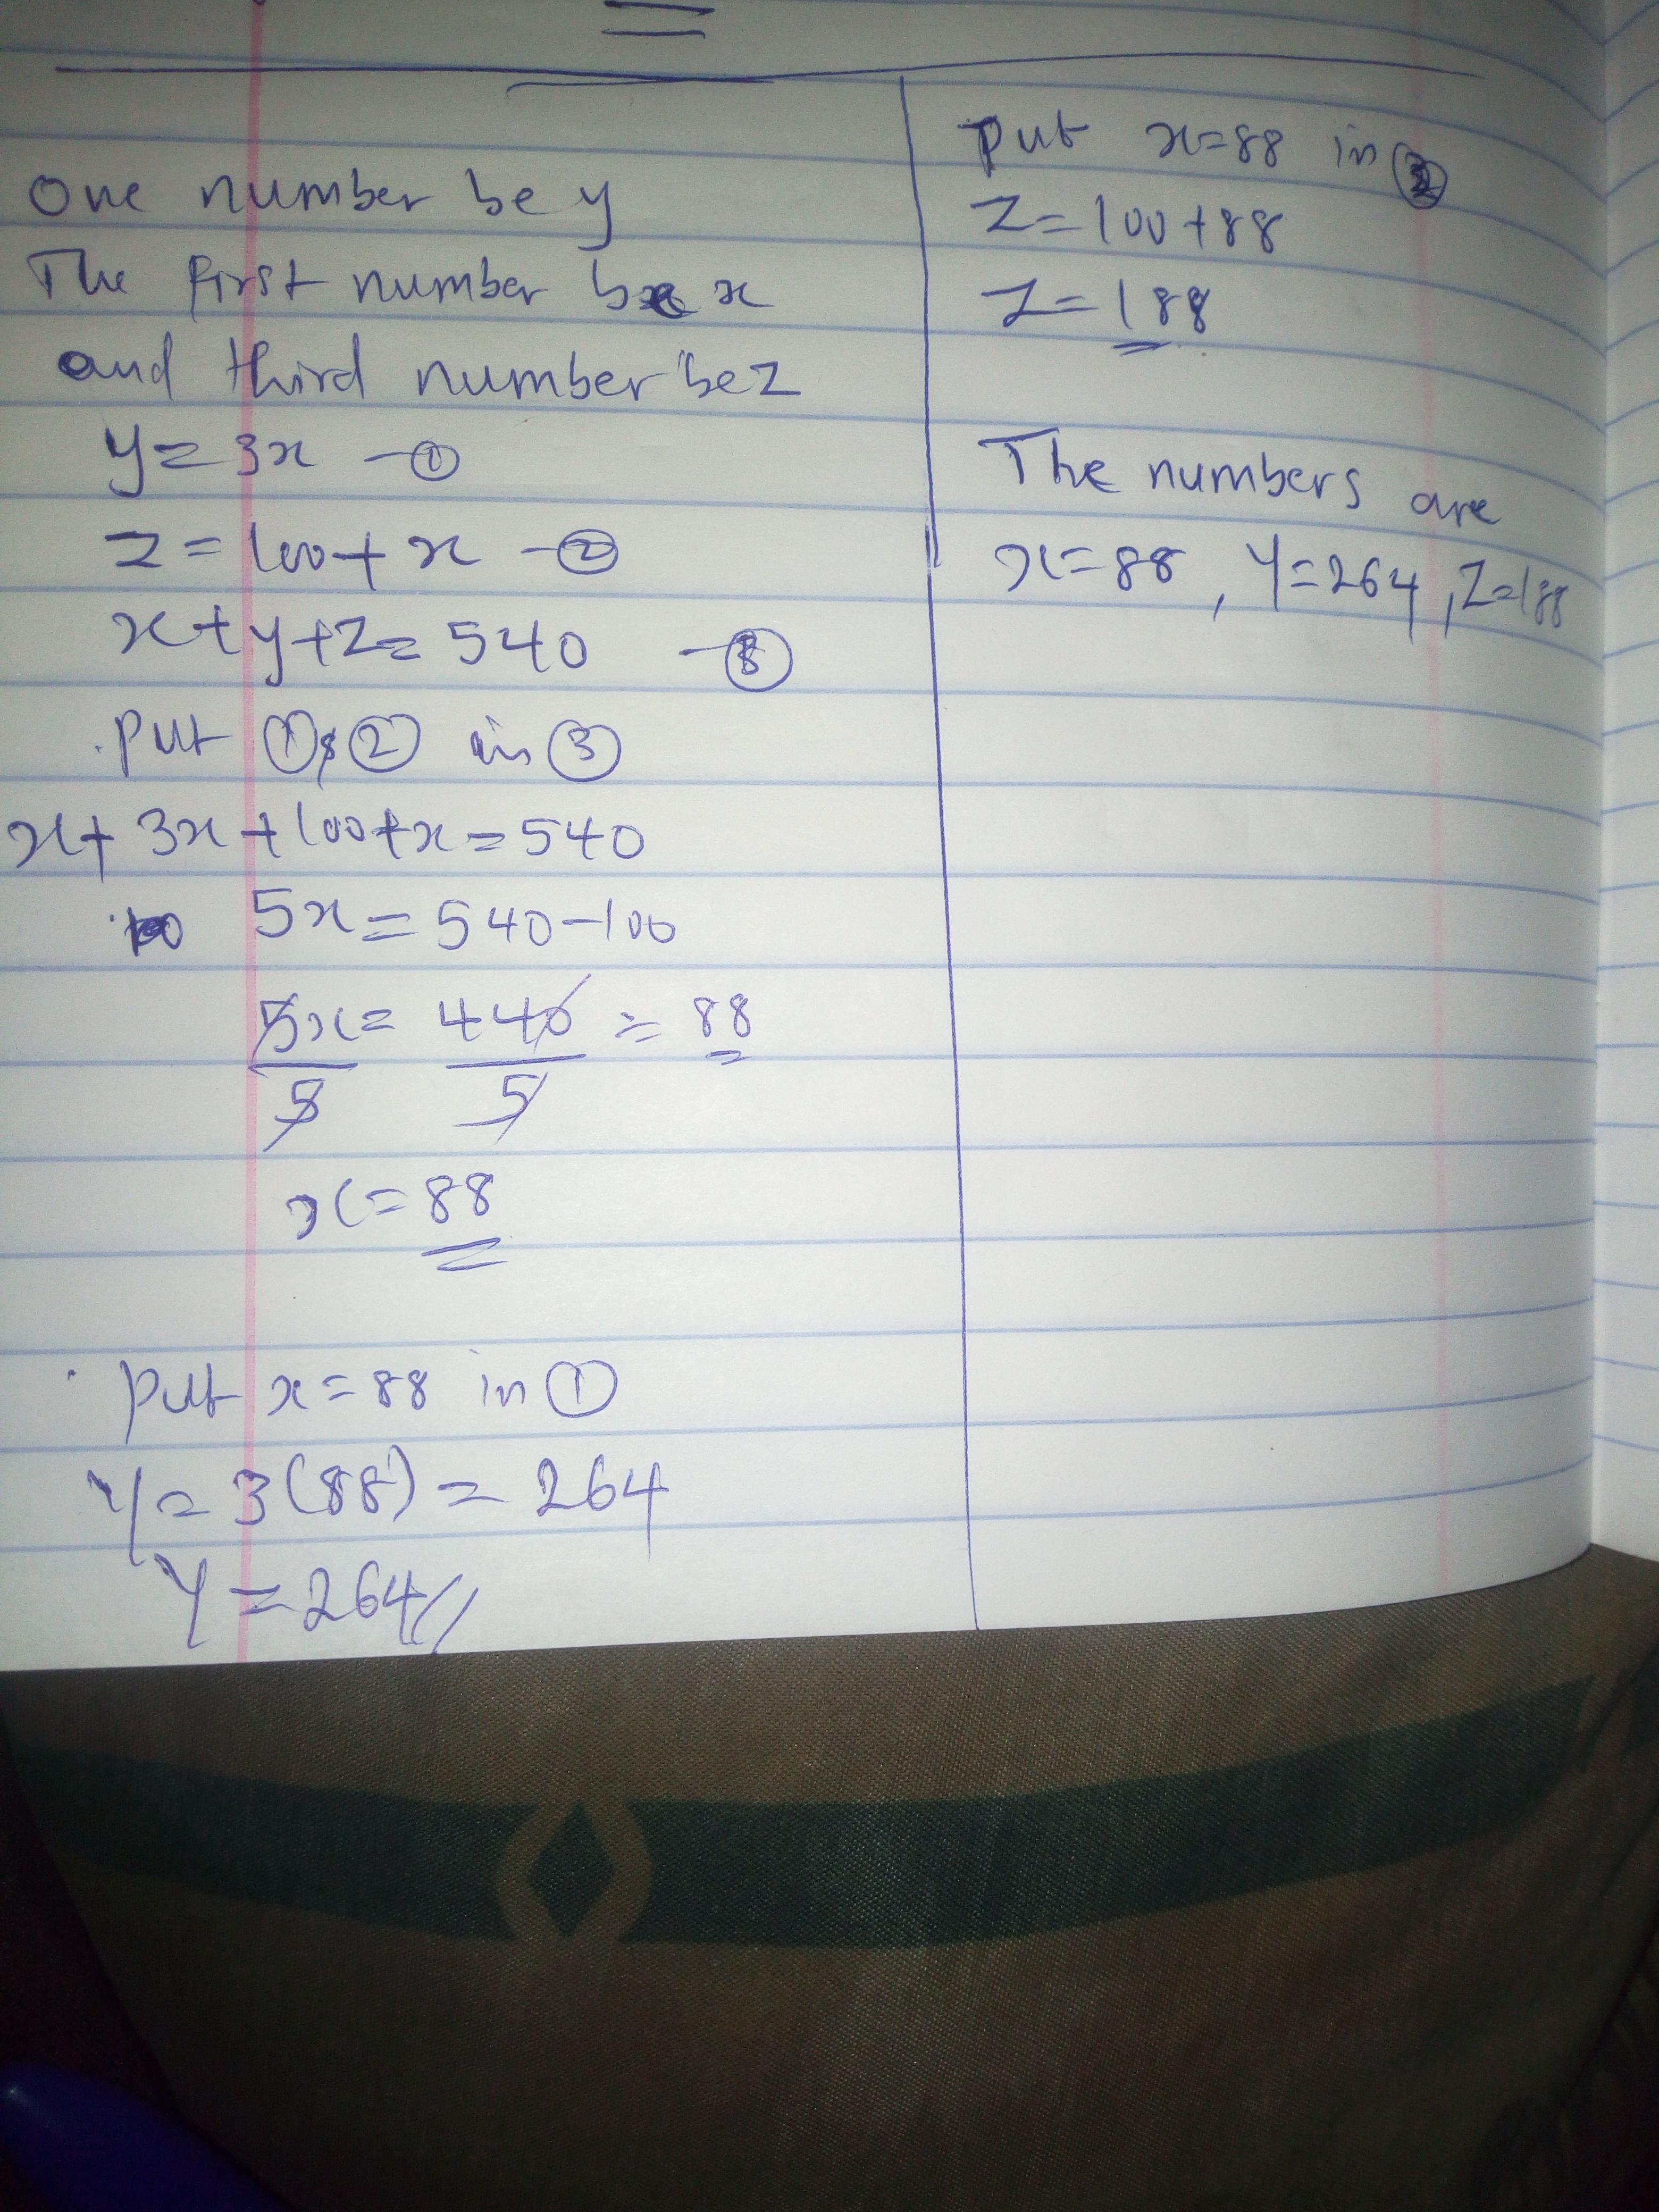 One number be y
The first number be x
and third number be z
y = 3x - ①
z = 100 + x - ②
x + y + z = 540 - ③
Put ① & ② in ③
x + 3x + 100 + x = 540
5x = 540 - 100
5x = 440 = 88
5 5
x = 88
Put x = 88 in ①
Y = 3(88) = 264
Y = 264//
Put x = 88 in ②
Z = 100 + 88
Z = 188
The numbers are
x = 88, Y = 264, Z = 188